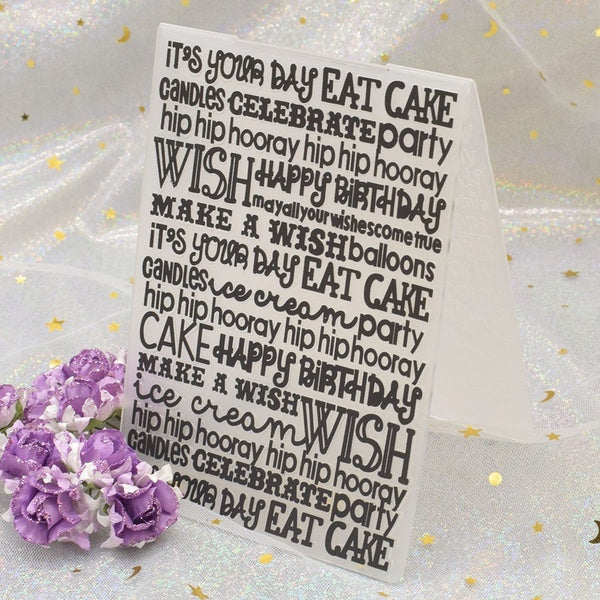 iT'S YOUR DAY EAT CAKE
CANDLES CELEBRATE party
hip hip hooray hip hip hooray
WISH HAPPY BIRTHDAY
may all your wishes come true
MAKE A WISH balloons
iT'S YOUR DAY EAT CAKE
CANDLES ice cream party
hip hip hooray hip hip hooray
CAKE HAPPY BIRTHDAY
MAKE A WISH WISH
ice cream
hip hip hooray hip hip hooray
CANDLES CELEBRATE party
YOUR DAY EAT CAKE